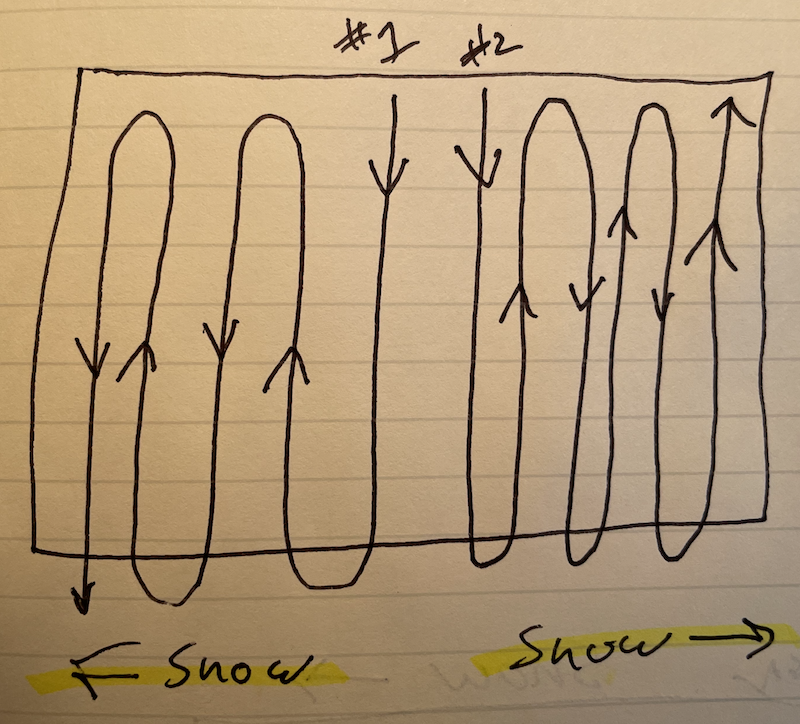 #1 #2
← Snow Snow →